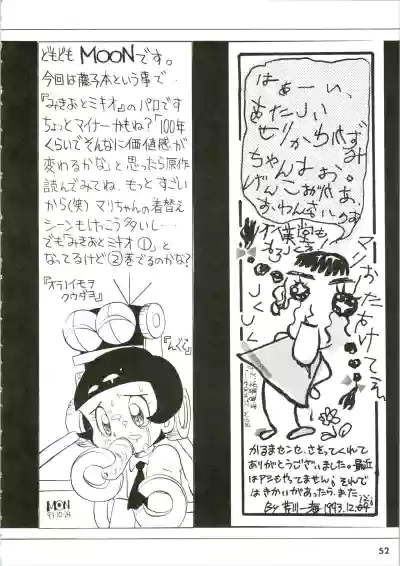 どもども MOONです。
今回は藤子本という事で…
『みきおとミキオ』のパロです
ちょっとマイナーかもね?「100年
くらいでそんなに価値感が
変わるかな」と思ったら原作
読んでみてね。もっとすごい
から(笑)マリちゃんの着替え
シーンもけっこう多いし…
でも『みきおとミキオ①』と
なってるけど②巻でるのかな?
『オラノイモヲ
クウダヨ』
『んぐぐ』
MOON
93・10・24
はぁーい、
あたしい
せりかわやすみ
ちゃんよぉ。
げんこおがぁ、
マリおたすけてえ
かるまセンセ、さそってくれて
ありがとうございました。最近
はアシもやってません。それで
はきかいがあったら、また
By 草川一海 1993.12.04
52